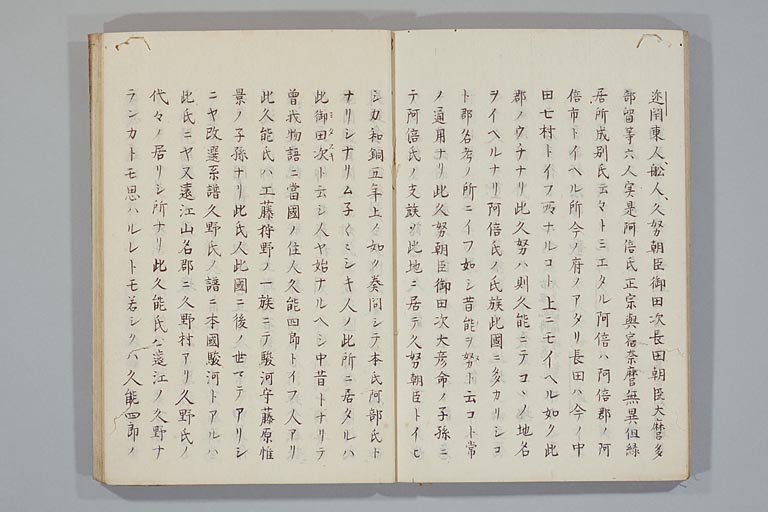 迩関東人舩人久努朝臣御田次長田朝臣大麿多
部留等六人実是阿倍氏正宗與宿奈麿無異但縁
居所成別氏云々トミエタル阿倍ハ阿倍郡ノ阿
倍市トイヘル所今ノ府ノアタリ長田ハ今ノ中
田七村トイフ西ナルコト上ニモイヘル如ク此
郡ノウチナリ此久努ハ則久能ニテコヽノ地名
ヲイヘルナリ阿倍氏ノ氏族此國ニ多カリシコ
ト郡名考ノ所ニイフ如シ昔能ヲ努ト云コト常
ノ通用ナリ此久努朝臣御田次大彦命ノ子孫ニ
テ阿倍氏ノ支族ソ此地ニ居テ久努朝臣トイヒ
シカ和銅五年上ノ如ク奏問シテ本氏阿部氏ト
ナリシナリム子〱シキ人ノ此所ニ居タルハ
此御田次ト云シ人ヤ始ナルヘシ中昔トナリテ
ミタスキ
曽我物語ニ當國ノ住人久能四郎トイフ人アリ
此久能氏ハ工藤狩野ノ一族ニテ駿河守藤原惟
景ノ子孫ナリ此氏人此國ニ後ノ世マテアリシ
ニヤ改選系譜久野氏ノ譜ニ本國駿河トアルハ
此氏ニヤ又遠江山名郡ニ久野村アリ久野氏ノ
代々ノ居リシ所ナリ此久能氏ハ遠江ノ久野ナ
ランカトモ思ハルレトモ若シクハ久能四郎ノ